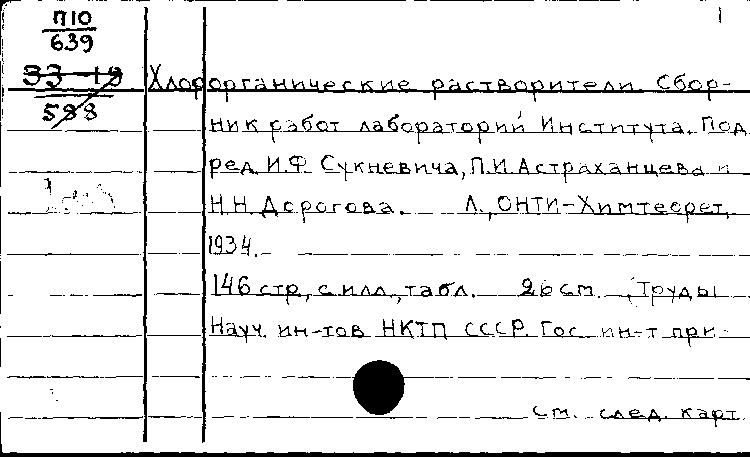 П10
639
33-19
588
1
Хлорорганические растворители. Сбор-
ник работ лабораторий Института. Под
ред. И.Ф. Сукневича, П.И. Астраханцева и
Н.Н. Дорогова. Л., ОНТИ-Химтеорет,
1934.
146 стр., с илл., табл. 26 см. (Труды
Науч. ин-тов НКТП СССР. Гос. ин-т при-
См. след. карт.